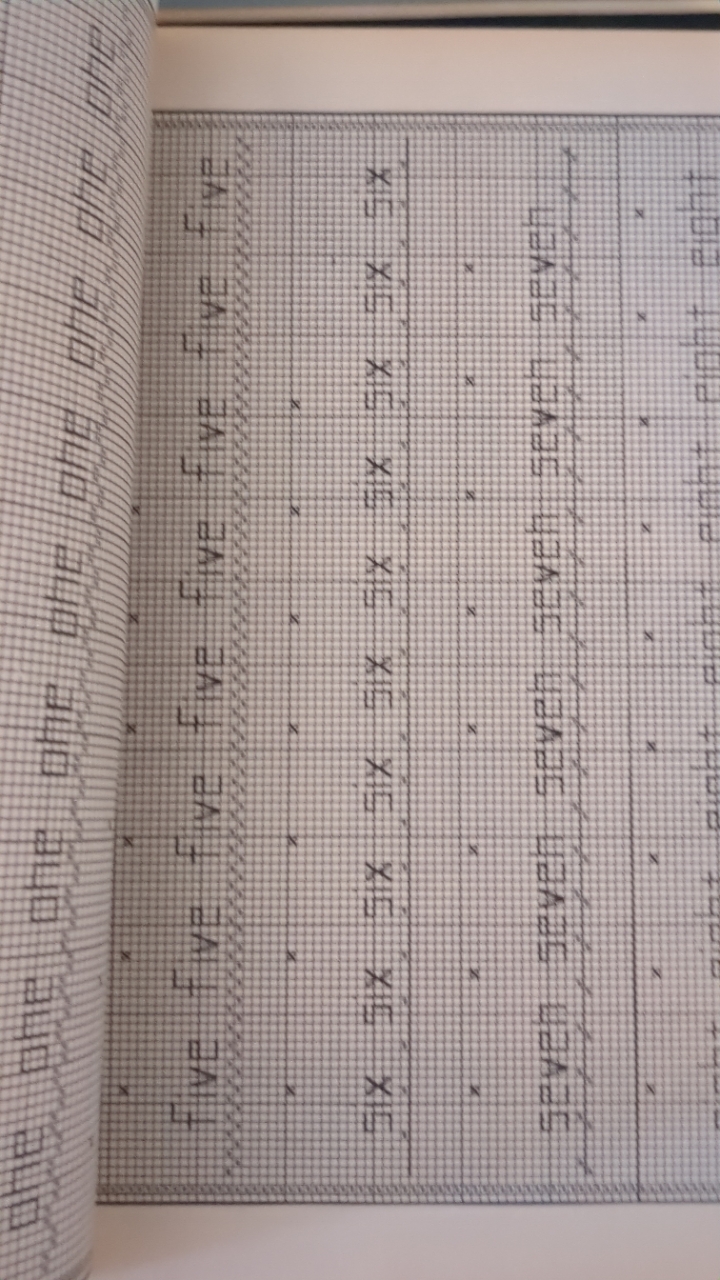 one one one one one one one one one
five five five five five five five five
six six six six six six six six six six
seven seven seven seven seven seven
eight eight eight eight eight eight